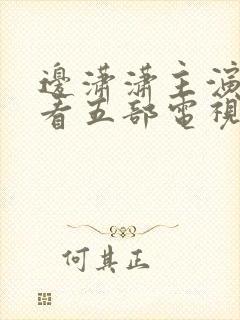 邊瀟瀟主演
者五部電視
何其正